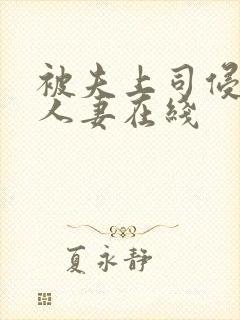 被夫上司侵
人妻在线
夏永静